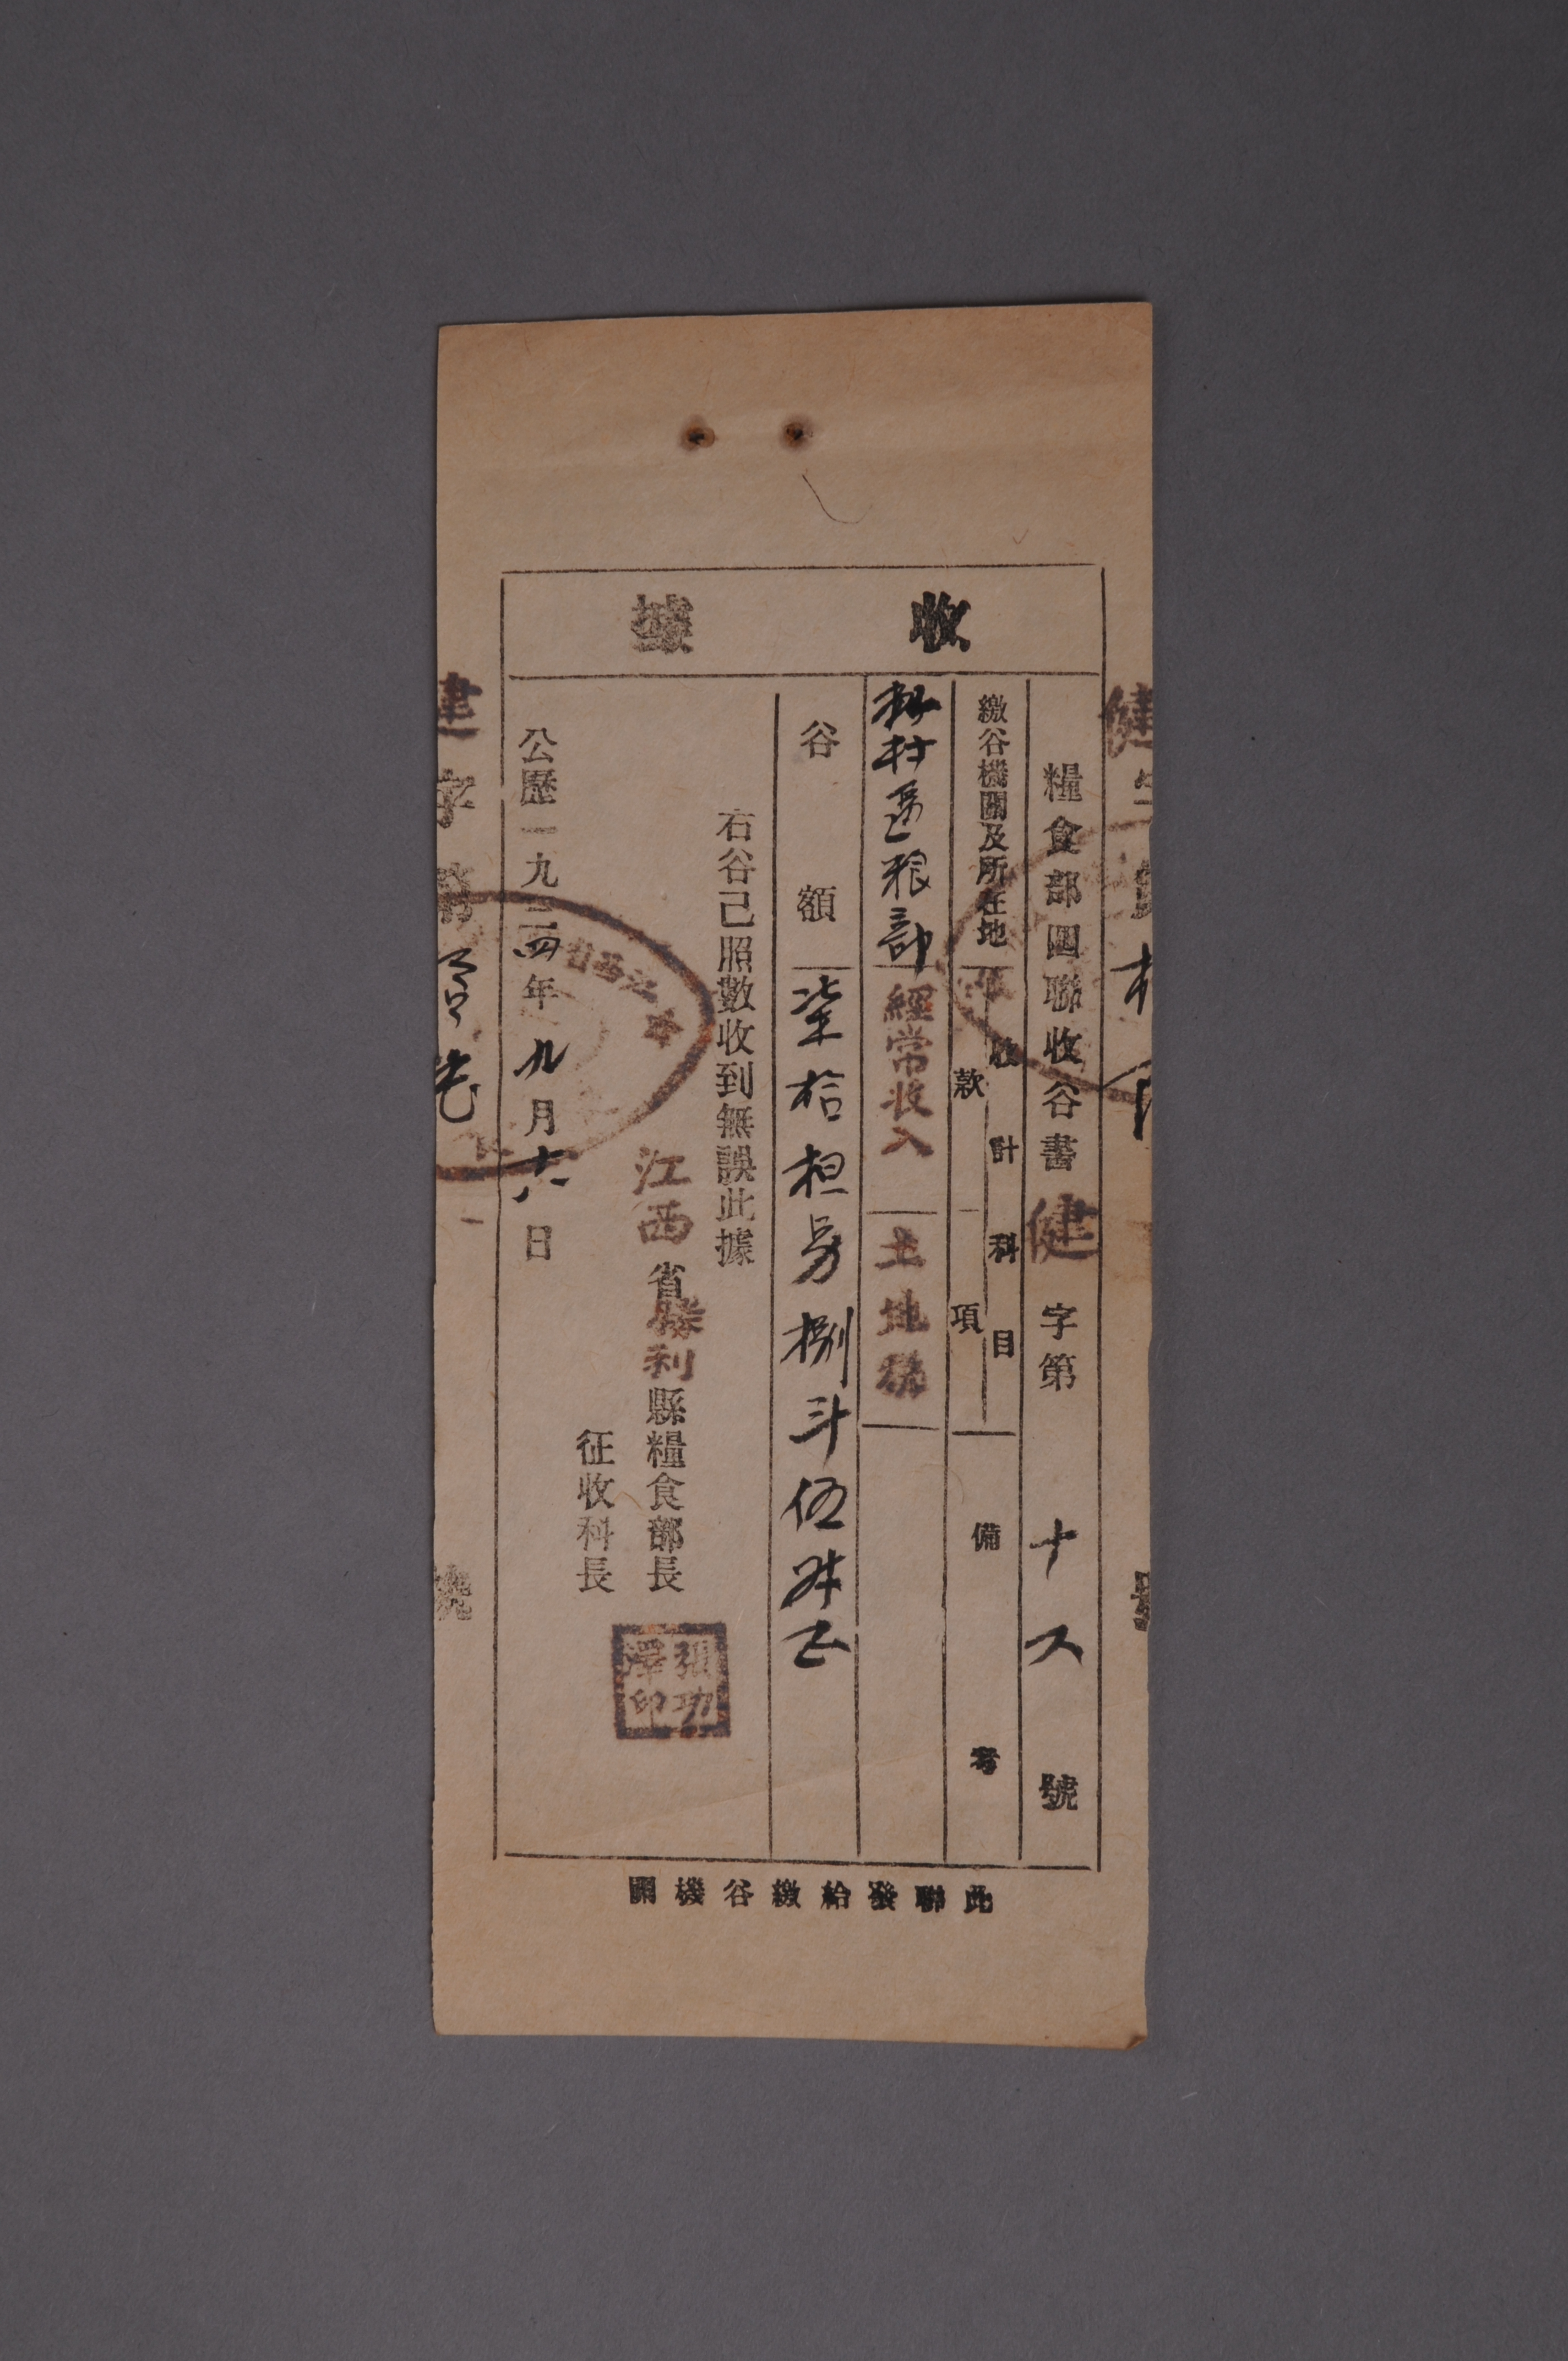 收據
糧食部四聯收谷書健字第十號
繳谷機關及所在地
收計科目
款項
備考
村區粮部
經常收入
土地稅
谷額
柒拾担另捌斗伍升正
右谷已照數收到無誤此據
江西省勝利縣糧食部長
征收科長
張功澤印
公歷一九三四年九月十六日
此聯發給繳谷機關
健字
建字第
號